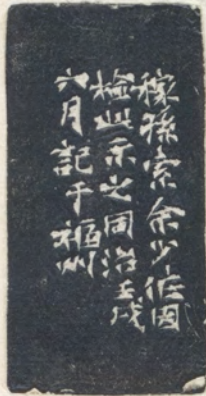 稼孫索余少作因
檢此示之同治壬戌
六月記于福州